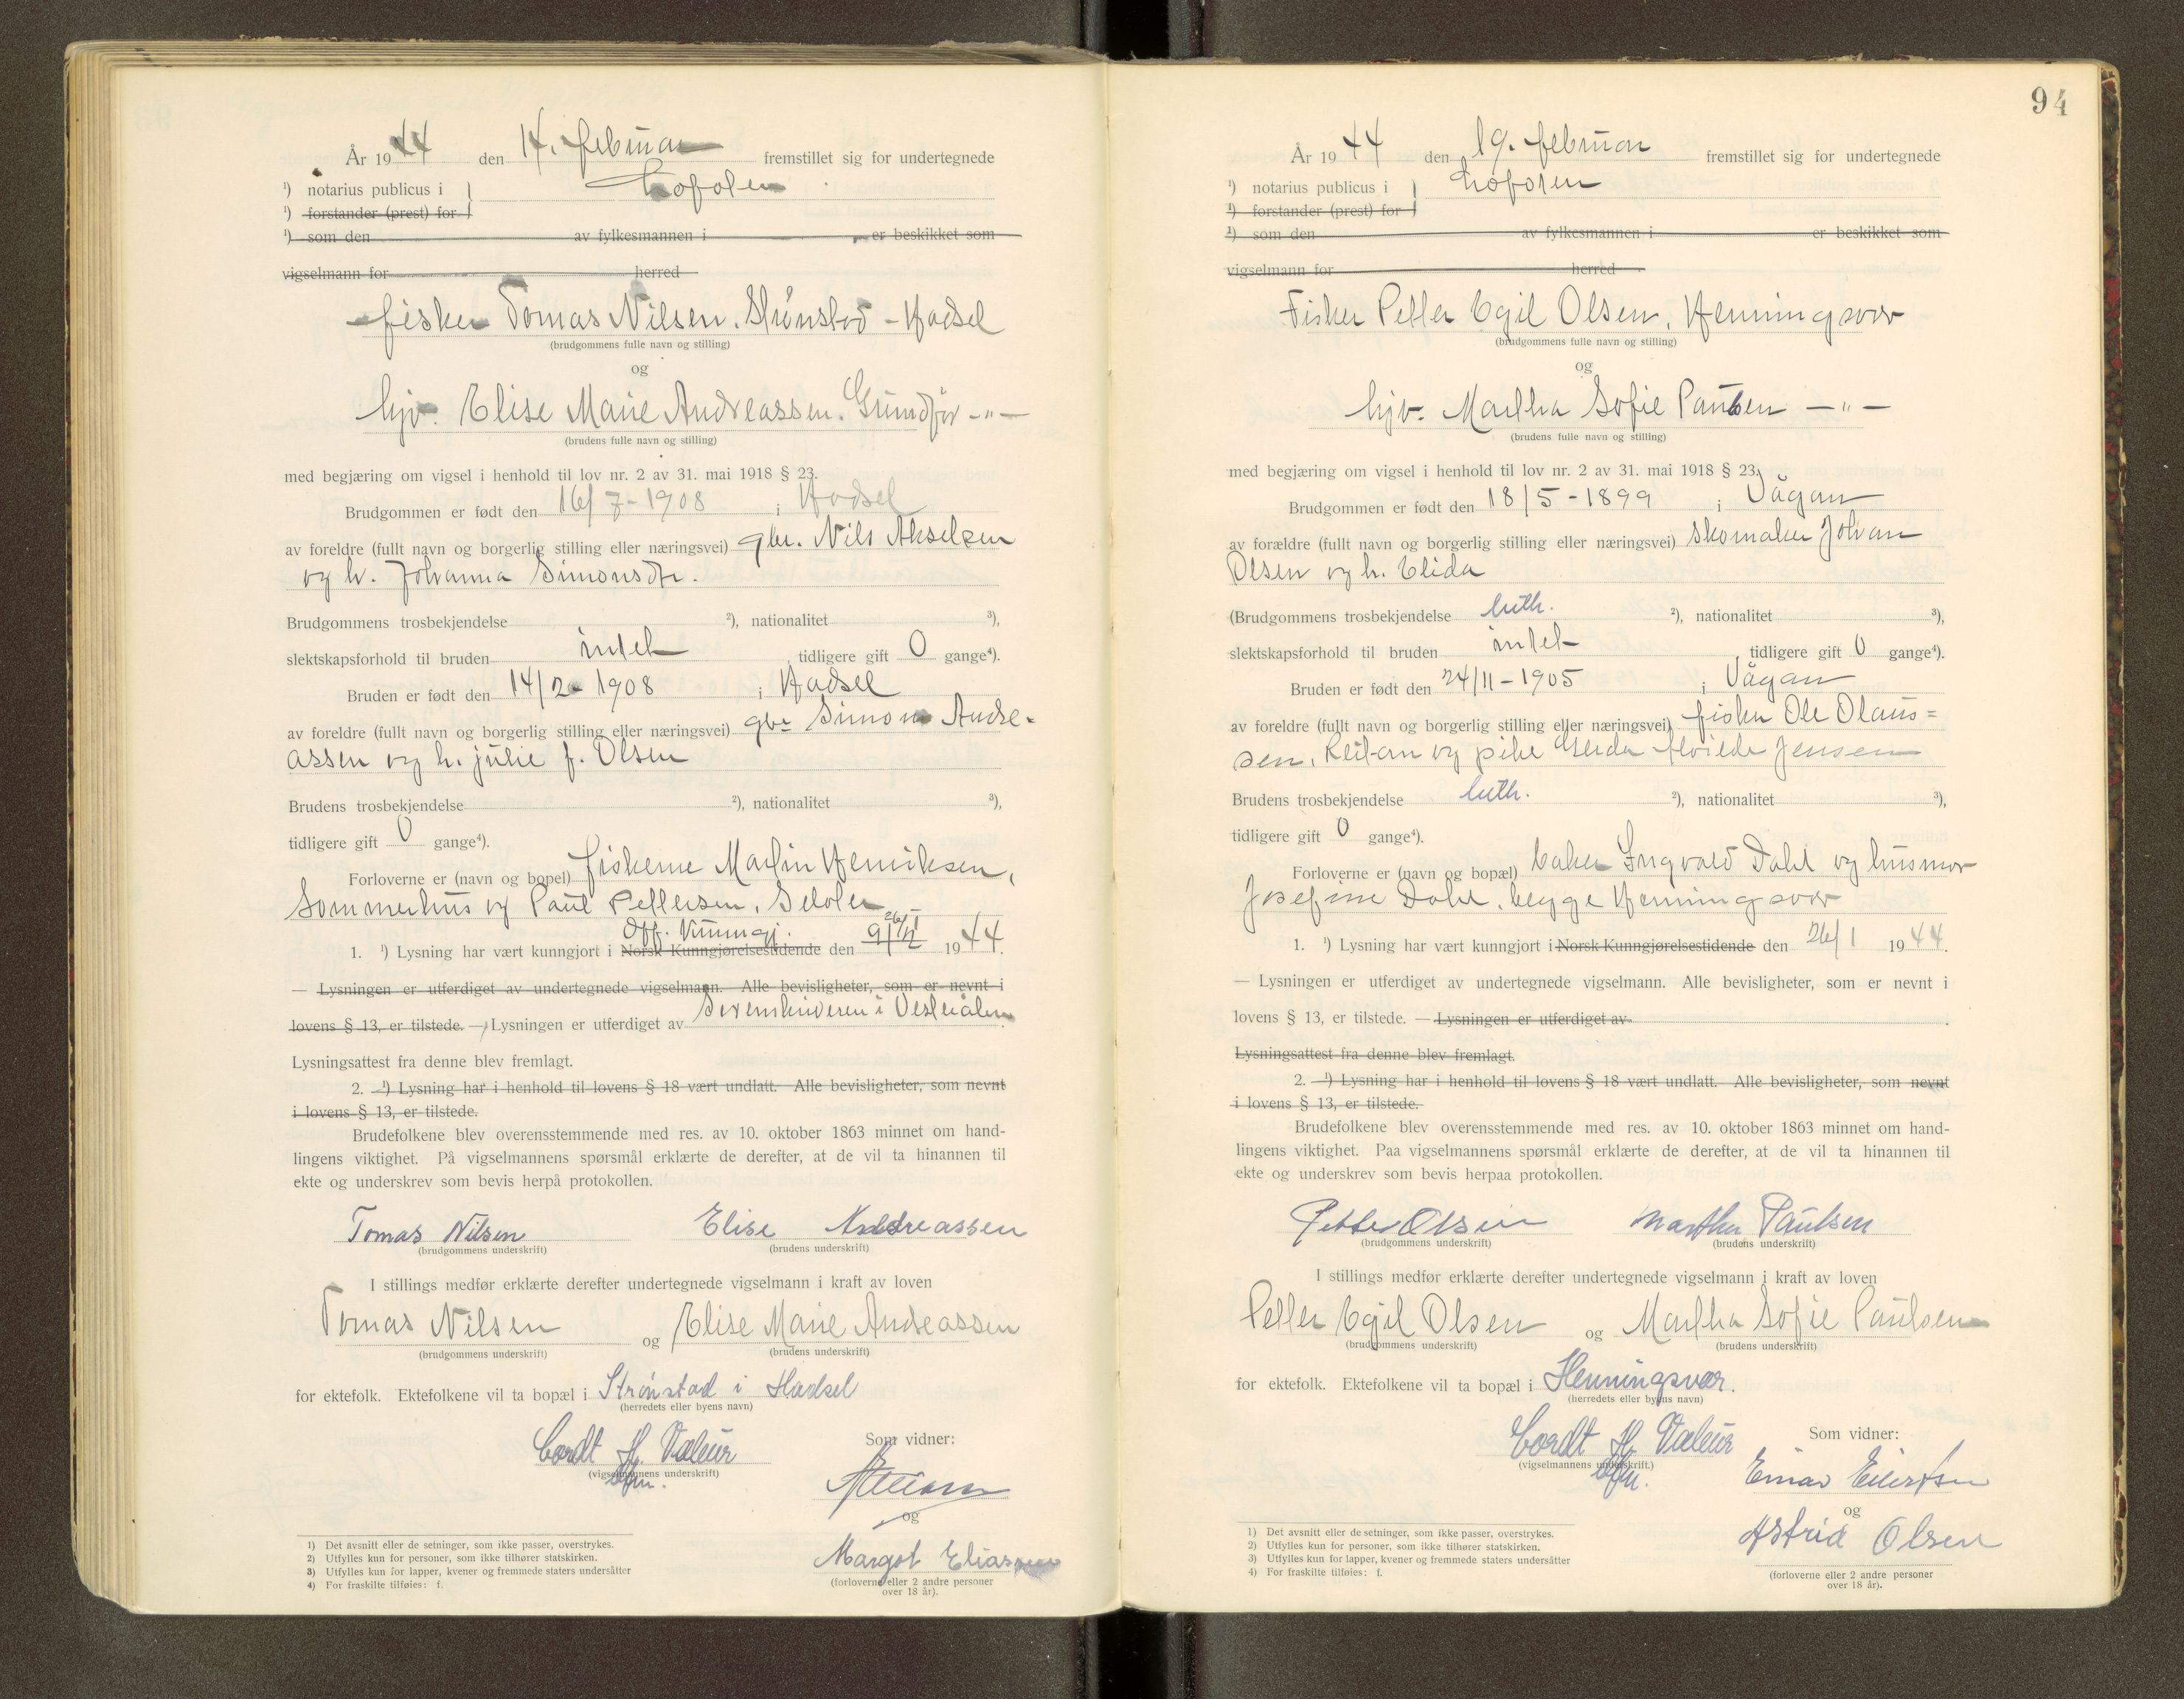 År 1944 den 14. februar fremstillet sig for undertegnede
¹) notarius publicus i Lofoten
¹) forstander (prest) for
¹) som den av fylkesmannen i er beskikket som
vigselmann for herred
fisker Tomas Nilsen, Strønstad - Hadsel
(brudgommens fulle navn og stilling)
og
hjv. Elise Marie Andreassen, Grundfør -"-
(brudens fulle navn og stilling)
med begjæring om vigsel i henhold til lov nr. 2 av 31. mai 1918 § 23.
Brudgommen er født den 16/7-1908 i Hadsel
av foreldre (fullt navn og borgerlig stilling eller næringsvei) gbr. Nils Akselsen
og h. Johanna Simonsdtr.
Brudgommens trosbekjendelse ²), nationalitet ³),
slektskapsforhold til bruden intet, tidligere gift 0 gange⁴).
Bruden er født den 14/2-1908 i Hadsel
av foreldre (fullt navn og borgerlig stilling eller næringsvei) gbr Simon Andre=
assen og h. Julie f. Olsen
Brudens trosbekjendelse ²), nationalitet ³),
tidligere gift 0 gange⁴).
Forloverne er (navn og bopel) fiskerne Martin Henriksen,
Sommerhus og Paul Pettersen,
Off. Kunngj. 26/1
1. ¹) Lysning har vært kunngjort i Norsk Kunngjørelsestidende den 1944.
— Lysningen er utferdiget av undertegnede vigselmann. Alle bevisligheter, som er nevnt i
lovens § 13, er tilstede. — Lysningen er utferdiget av Sorenskriveren i Vesterålen
Lysningsattest fra denne blev fremlagt.
2. ¹) Lysning har i henhold til lovens § 18 vært undlatt. Alle bevisligheter, som nevnt
i lovens § 13, er tilstede.
Brudefolkene blev overensstemmende med res. av 10. oktober 1863 minnet om hand-
lingens viktighet. På vigselmannens spørsmål erklærte de derefter, at de vil ta hinannen til
ekte og underskrev som bevis herpå protokollen.
Tomas Nilsen Elise Andreassen
(brudgommens underskrift) (brudens underskrift)
I stillings medfør erklærte derefter undertegnede vigselmann i kraft av loven
Tomas Nilsen og Elise Marie Andreassen
(brudgommens underskrift) (brudens underskrift)
for ektefolk. Ektefolkene vil ta bopæl i Strønstad i Hadsel
(herredets eller byens navn)
Cordt H. Valeur Som vidner:
(vigselmannens underskrift)
sfm.
og
Margot Eliassen
(forloverne eller 2 andre personer
over 18 år).
1) Det avsnitt eller de setninger, som ikke passer, overstrykes.
2) Utfylles kun for personer, som ikke tilhører statskirken.
3) Utfylles kun for lapper, kvener og fremmede staters undersåtter
4) For fraskilte tilføies: f.
94
År 1944 den 19. februar fremstillet sig for undertegnede
¹) notarius publicus i Lofoten
¹) forstander (prest) for
¹) som den av fylkesmannen i er beskikket som
vigselmann for herred
Fisker Petter Egil Olsen, Henningsvær
(brudgommens fulle navn og stilling)
og
hjv. Martha Sofie Paulsen -"-
(brudens fulle navn og stilling)
med begjæring om vigsel i henhold til lov nr. 2 av 31. mai 1918 § 23.
Brudgommen er født den 18/5-1899 i Vågan
av forældre (fullt navn og borgerlig stilling eller næringsvei) skomaker Johan
Olsen og h. Elida
(Brudgommens trosbekjendelse luth. ²), nationalitet ³),
slektskapsforhold til bruden intet, tidligere gift 0 gange⁴).
Bruden er født den 24/11-1905 i Vågan
av foreldre (fullt navn og borgerlig stilling eller næringsvei) fisker Ole Olaus=
sen, Reitan og pike Gerda Hvilda Jensen
Brudens trosbekjendelse luth. ²), nationalitet ³),
tidligere gift 0 gange⁴).
Forloverne er (navn og bopæl) baker Ingvald Dahl og husmor
Josefine Dahl, begge Henningsvær
1. ¹) Lysning har vært kunngjort i Norsk Kunngjørelsestidende den 26/1 1944.
— Lysningen er utferdiget av undertegnede vigselmann. Alle bevisligheter, som er nevnt i
lovens § 13, er tilstede. — Lysningen er utferdiget av .
Lysningsattest fra denne blev fremlagt.
2. ¹) Lysning har i henhold til lovens § 18 vært undlatt. Alle bevisligheter, som nevnt
i lovens § 13, er tilstede.
Brudefolkene blev overensstemmende med res. av 10. oktober 1863 minnet om hand-
lingens viktighet. Paa vigselmannens spørsmål erklærte de derefter, at de vil ta hinannen til
ekte og underskrev som bevis herpaa protokollen.
Petter Olsen Martha Paulsen
(brudgommens underskrift) (brudens underskrift)
I stillings medfør erklærte derefter undertegnede vigselmann i kraft av loven
Petter Egil Olsen og Martha Sofie Paulsen
(brudgommens underskrift) (brudens underskrift)
for ektefolk. Ektefolkene vil ta bopæl i Henningsvær.
(herredets eller byens navn)
Cordt H. Valeur Som vidner:
(vigselmannens underskrift.)
sfm. Einar Eilertsen
og
Astrid Olsen
(forloverne eller 2 andre personer
over 18 år).
1) Det avsnitt eller de setninger, som ikke passer, overstrykes.
2) Utfylles kun for personer, som ikke tilhører statskirken.
3) Utfylles kun for lapper, kvener og fremmede staters undersåtter
4) For fraskilte tilføies: f.